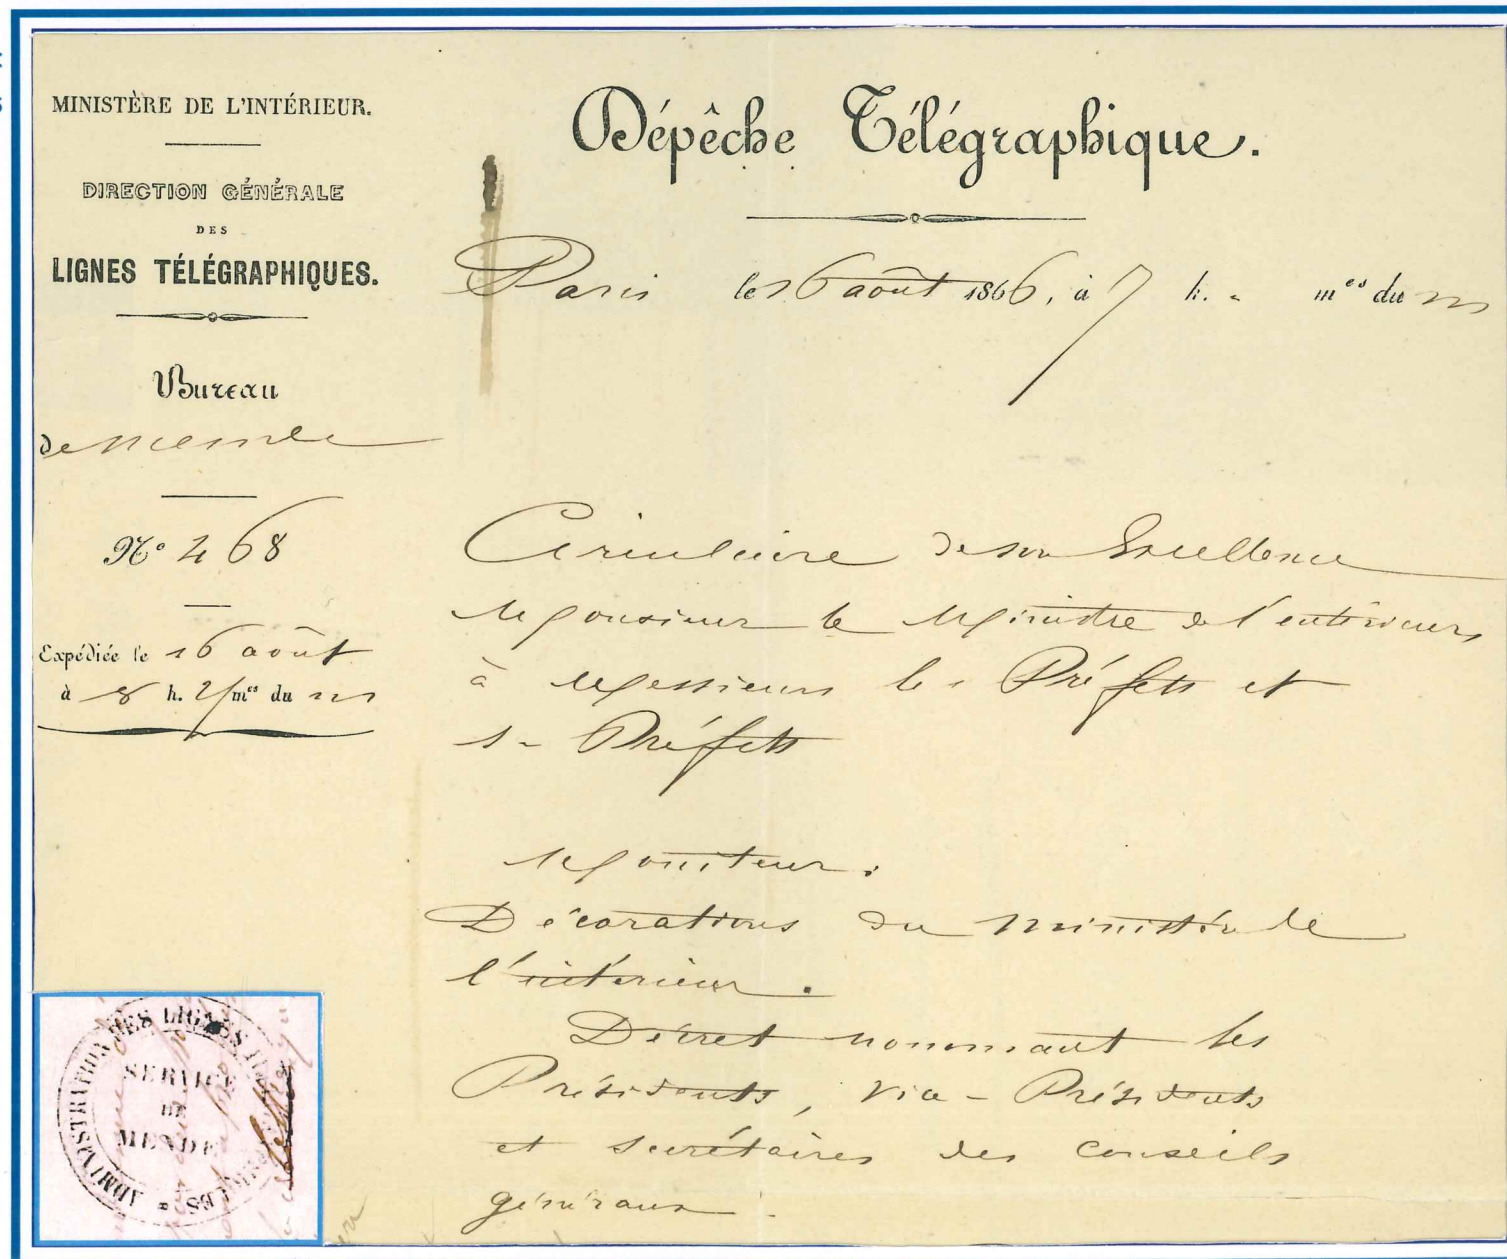 MINISTÈRE DE L'INTÉRIEUR.
DIRECTION GÉNÉRALE
DES
LIGNES TÉLÉGRAPHIQUES.
Bureau
de Mende
N° 468
Expédiée le 16 août
à 8 h. mes du m
Dépêche Télégraphique.
Paris le 16 août 1866, à 7 h. " mes du m
Circulaire de son Excellence
Monsieur le Ministre de l'intérieur
à Messieurs les Préfets et
s- Préfets
Moniteur.
Décorations du ministère de
l'intérieur.
Décret nommant les
Présidents, vice-Présidents
et secrétaires des conseils
généraux.
ADMINISTRATION DES LIGNES TÉLÉGRAPHIQUES
SERVICE
DE
MENDE